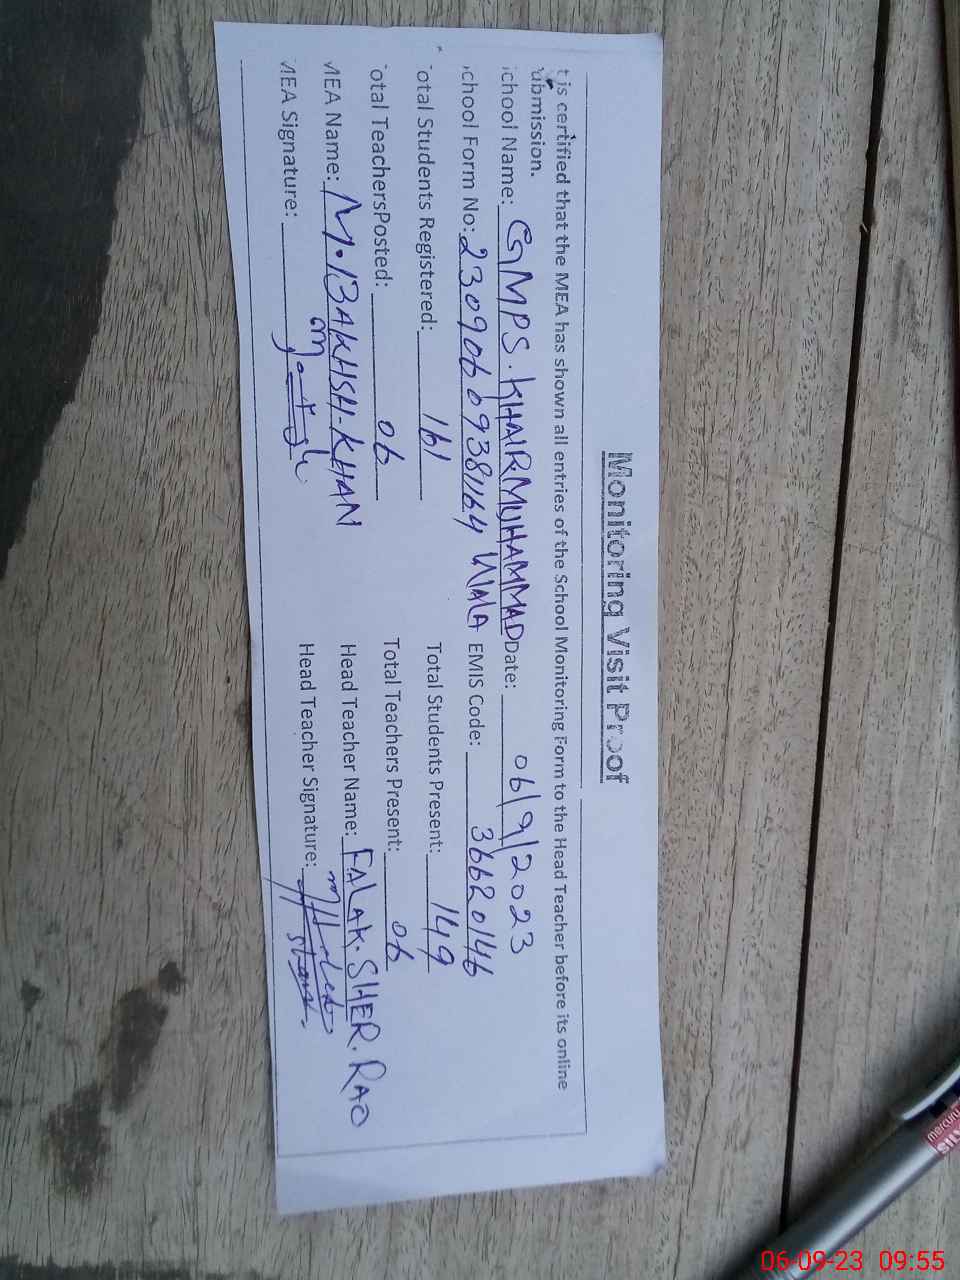 Monitoring Visit Proof
t is certified that the MEA has shown all entries of the School Monitoring Form to the Head Teacher before its online
ubmission.
chool Name: GMPS. KHAIR MUHAMMAD WALA Date: 06/9/2023
chool Form No: 2309060938164 EMIS Code: 36620146
otal Students Registered: 161 Total Students Present: 149
otal TeachersPosted: 06 Total Teachers Present: 06
MEA Name: M. BAKHSH. KHAN Head Teacher Name: FALAK. SHER. RAO
MEA Signature: Head Teacher Signature:
mercury
06-09-23 09:55